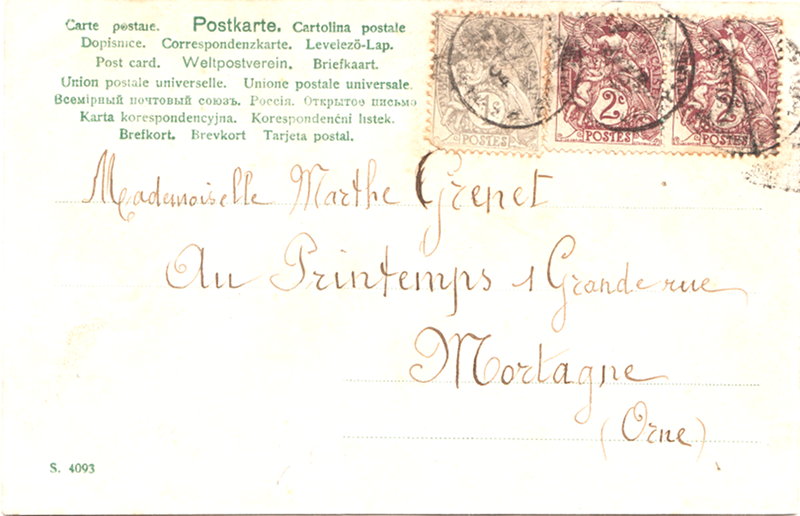 Carte postale. Postkarte. Cartolina postale
Dopisnice. Correspondenzkarte. Levelező-Lap.
Post card. Weltpostverein. Briefkaart.
Union postale universelle. Unione postale universale.
Всемірный почтовый союзъ. Россія. Открытое письмо
Karta korespondencyjna. Korespondenční listek.
Brefkort. Brevkort Tarjeta postal.
POSTES
2c
POSTES
2
POSTES
Mademoiselle Marthe Grenet
Au Printemps 1 Grande rue
Mortagne
(Orne)
S. 4093